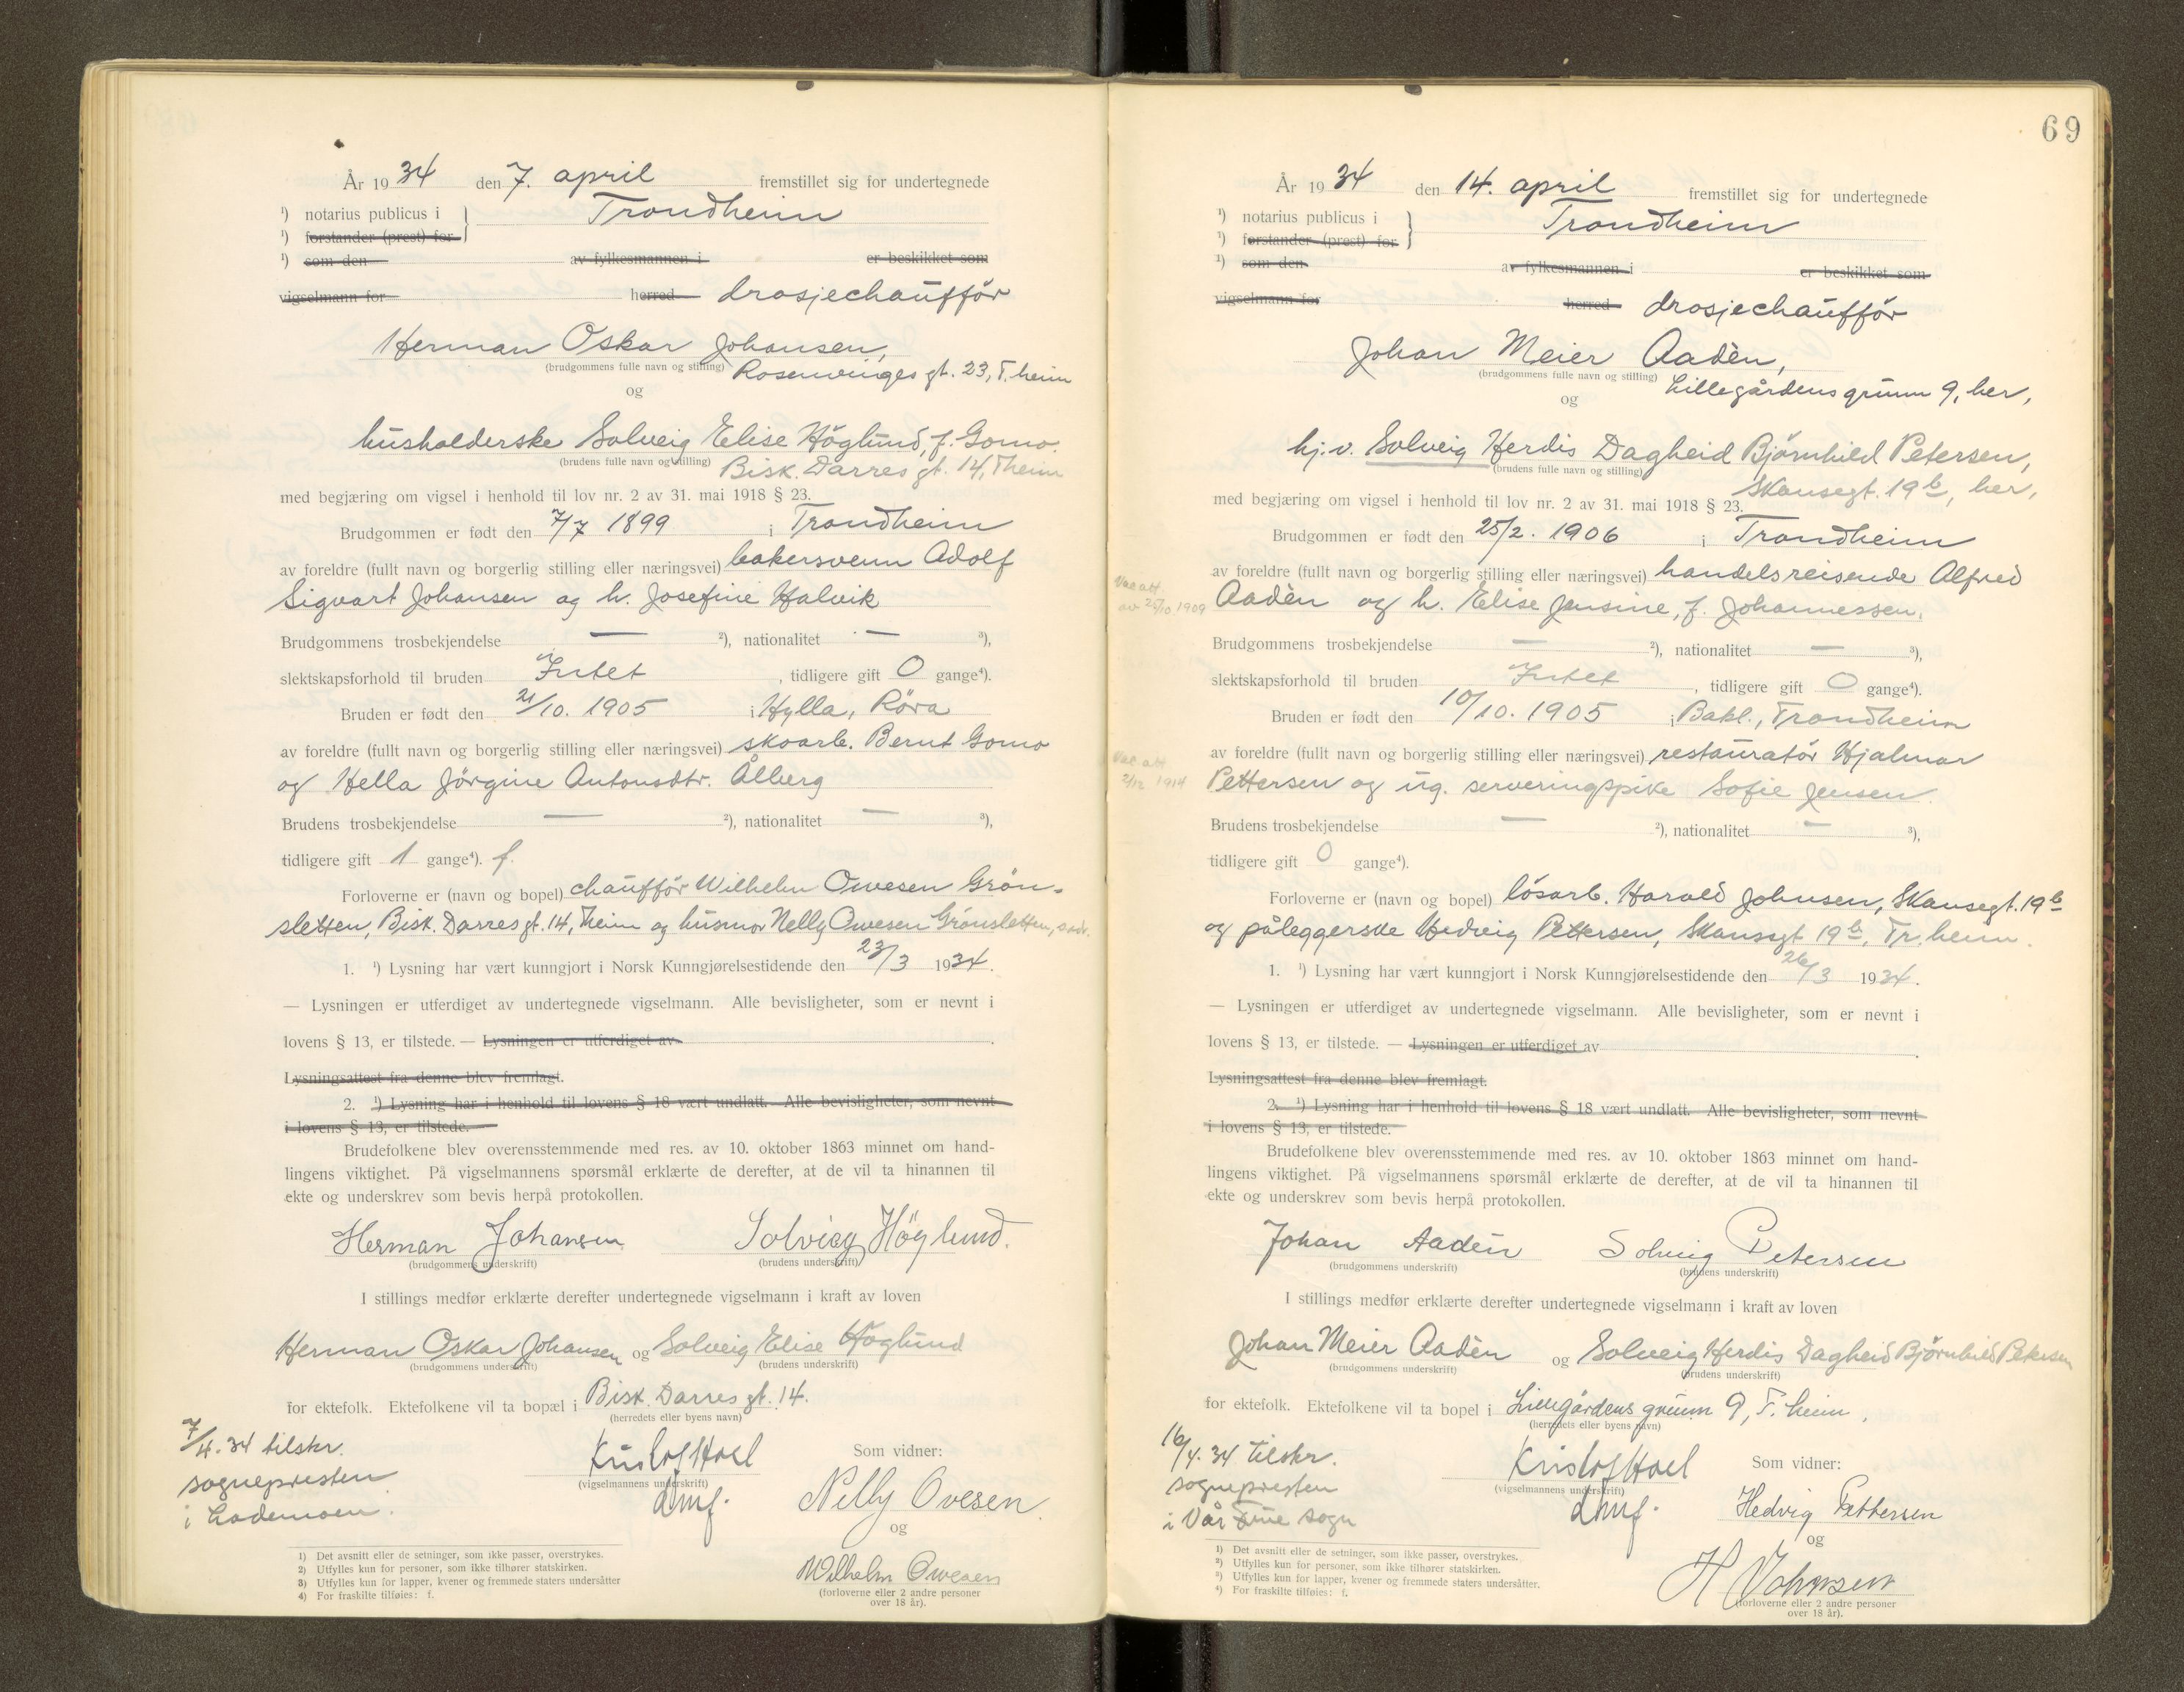 År 1934 den 7. april fremstillet sig for undertegnede
¹) notarius publicus i Trondheim
¹) forstander (prest) for
¹) som den av fylkesmannen i er beskikket som
vigselmann for herred drosjechauffør
Herman Oskar Johansen,
(brudgommens fulle navn og stilling) Rosenvinges gt. 23, T.heim
og
husholderske Solveig Elise Höglund, f. Gomo.
(brudens fulle navn og stilling) Bisk. Darres gt. 14, Theim
med begjæring om vigsel i henhold til lov nr. 2 av 31. mai 1918 § 23.
Brudgommen er født den 7/7 1899 i Trondheim
av foreldre (fullt navn og borgerlig stilling eller næringsvei) bakersvenn Adolf
Sigvart Johansen og h. Josefine Halvik
Brudgommens trosbekjendelse — ²), nationalitet — ³),
slektskapsforhold til bruden Intet, tidligere gift 0 gange⁴).
Bruden er født den 21/10. 1905 i Hylla, Röra
av foreldre (fullt navn og borgerlig stilling eller næringsvei) skoarb. Bernt Gomo
og Hella Jörgine Antonsdtr. Ålberg
Brudens trosbekjendelse — ²), nationalitet — ³),
tidligere gift 1 gange⁴). f.
Forloverne er (navn og bopel) chauffør Wilhelm Owesen Grön-
sletten, Bisk. Darres gt. 14, Theim og husmor Nelly Owesen Grönsletten, sadr.
1. ¹) Lysning har vært kunngjort i Norsk Kunngjørelsestidende den 23/3 1934.
— Lysningen er utferdiget av undertegnede vigselmann. Alle bevisligheter, som er nevnt i
lovens § 13, er tilstede. — Lysningen er utferdiget av
Lysningsattest fra denne blev fremlagt.
2. ¹) Lysning har i henhold til lovens § 18 vært undlatt. Alle bevisligheter, som nevnt
i lovens § 13, er tilstede.
Brudefolkene blev overensstemmende med res. av 10. oktober 1863 minnet om hand-
lingens viktighet. På vigselmannens spørsmål erklærte de derefter, at de vil ta hinannen til
ekte og underskrev som bevis herpå protokollen.
Herman Johansen Solvieg Höglund.
(brudgommens underskrift) (brudens underskrift)
I stillings medfør erklærte derefter undertegnede vigselmann i kraft av loven
Herman Oskar Johansen og Solveig Elise Höglund
(brudgommens underskrift) (brudens underskrift)
for ektefolk. Ektefolkene vil ta bopæl i Bisk. Darres gt. 14.
(herredets eller byens navn)
7/4. 34 tilskr.
sognepresten
i Lademoen.
Kristof Hoel
(vigselmannens underskrift)
dmf.
Som vidner:
Nelly Ovesen
og
Wilhelm Owesen
(forloverne eller 2 andre personer
over 18 år).
1) Det avsnitt eller de setninger, som ikke passer, overstrykes.
2) Utfylles kun for personer, som ikke tilhører statskirken.
3) Utfylles kun for lapper, kvener og fremmede staters undersåtter
4) For fraskilte tilføies: f.
69
År 1934 den 14. april fremstillet sig for undertegnede
¹) notarius publicus i Trondheim
¹) forstander (prest) for
¹) som den av fylkesmannen i er beskikket som
vigselmann for herred drosjechauffør
Johan Meier Aadèn,
(brudgommens fulle navn og stilling) Lillegårdens grunn 9, her,
og
hj.v. Solveig Herdis Dagheid Björnhild Petersen,
(brudens fulle navn og stilling) Skansegt. 19b, her,
med begjæring om vigsel i henhold til lov nr. 2 av 31. mai 1918 § 23.
Brudgommen er født den 25/2. 1906 i Trondheim
av foreldre (fullt navn og borgerlig stilling eller næringsvei) handelsreisende Alfred
Vac.att. av 25/10. 1909
Aadèn og h. Elise Jensine, f. Johannessen.
Brudgommens trosbekjendelse — ²), nationalitet — ³),
slektskapsforhold til bruden Intet, tidligere gift 0 gange⁴).
Bruden er født den 10/10. 1905 i Bakl., Trondheim
av foreldre (fullt navn og borgerlig stilling eller næringsvei) restauratør Hjalmar
Vac.att 2/12 1914
Pettersen og ug. serveringspike Sofie Jensen.
Brudens trosbekjendelse — ²), nationalitet — ³),
tidligere gift 0 gange⁴).
Forloverne er (navn og bopel) lösarb. Harald Johnsen, Skansegt. 19b
og påleggerske Hedvig Pettersen, Skansegt 19b, Tr.heim.
1. ¹) Lysning har vært kunngjort i Norsk Kunngjørelsestidende den 26/3 1934.
— Lysningen er utferdiget av undertegnede vigselmann. Alle bevisligheter, som er nevnt i
lovens § 13, er tilstede. — Lysningen er utferdiget av
Lysningsattest fra denne blev fremlagt.
2. ¹) Lysning har i henhold til lovens § 18 vært undlatt. Alle bevisligheter, som nevnt
i lovens § 13, er tilstede.
Brudefolkene blev overensstemmende med res. av 10. oktober 1863 minnet om hand-
lingens viktighet. På vigselmannens spørsmål erklærte de derefter, at de vil ta hinannen til
ekte og underskrev som bevis herpå protokollen.
Johan Aadén Solveig Petersen
(brudgommens underskrift) (brudens underskrift)
I stillings medfør erklærte derefter undertegnede vigselmann i kraft av loven
Johan Meier Aadèn og Solveig Herdis Dagheid Björnhild Petersen
(brudgommens underskrift) (brudens underskrift)
for ektefolk. Ektefolkene vil ta bopel i Lillegårdens grunn 9, T.heim,
(herredets eller byens navn)
16/4. 34 tilskr.
sognepresten
i Vår Frue sogn
Kristof Hoel
(vigselmannens underskrift)
dmf.
Som vidner:
Hedvig Pettersen
og
H Johnsen
(forloverne eller 2 andre personer
over 18 år).
¹) Det avsnitt eller de setninger, som ikke passer, overstrykes.
²) Utfylles kun for personer, som ikke tilhører statskirken.
³) Utfylles kun for lapper, kvener og fremmede staters undersåtter.
⁴) For fraskilte tilføies: f.